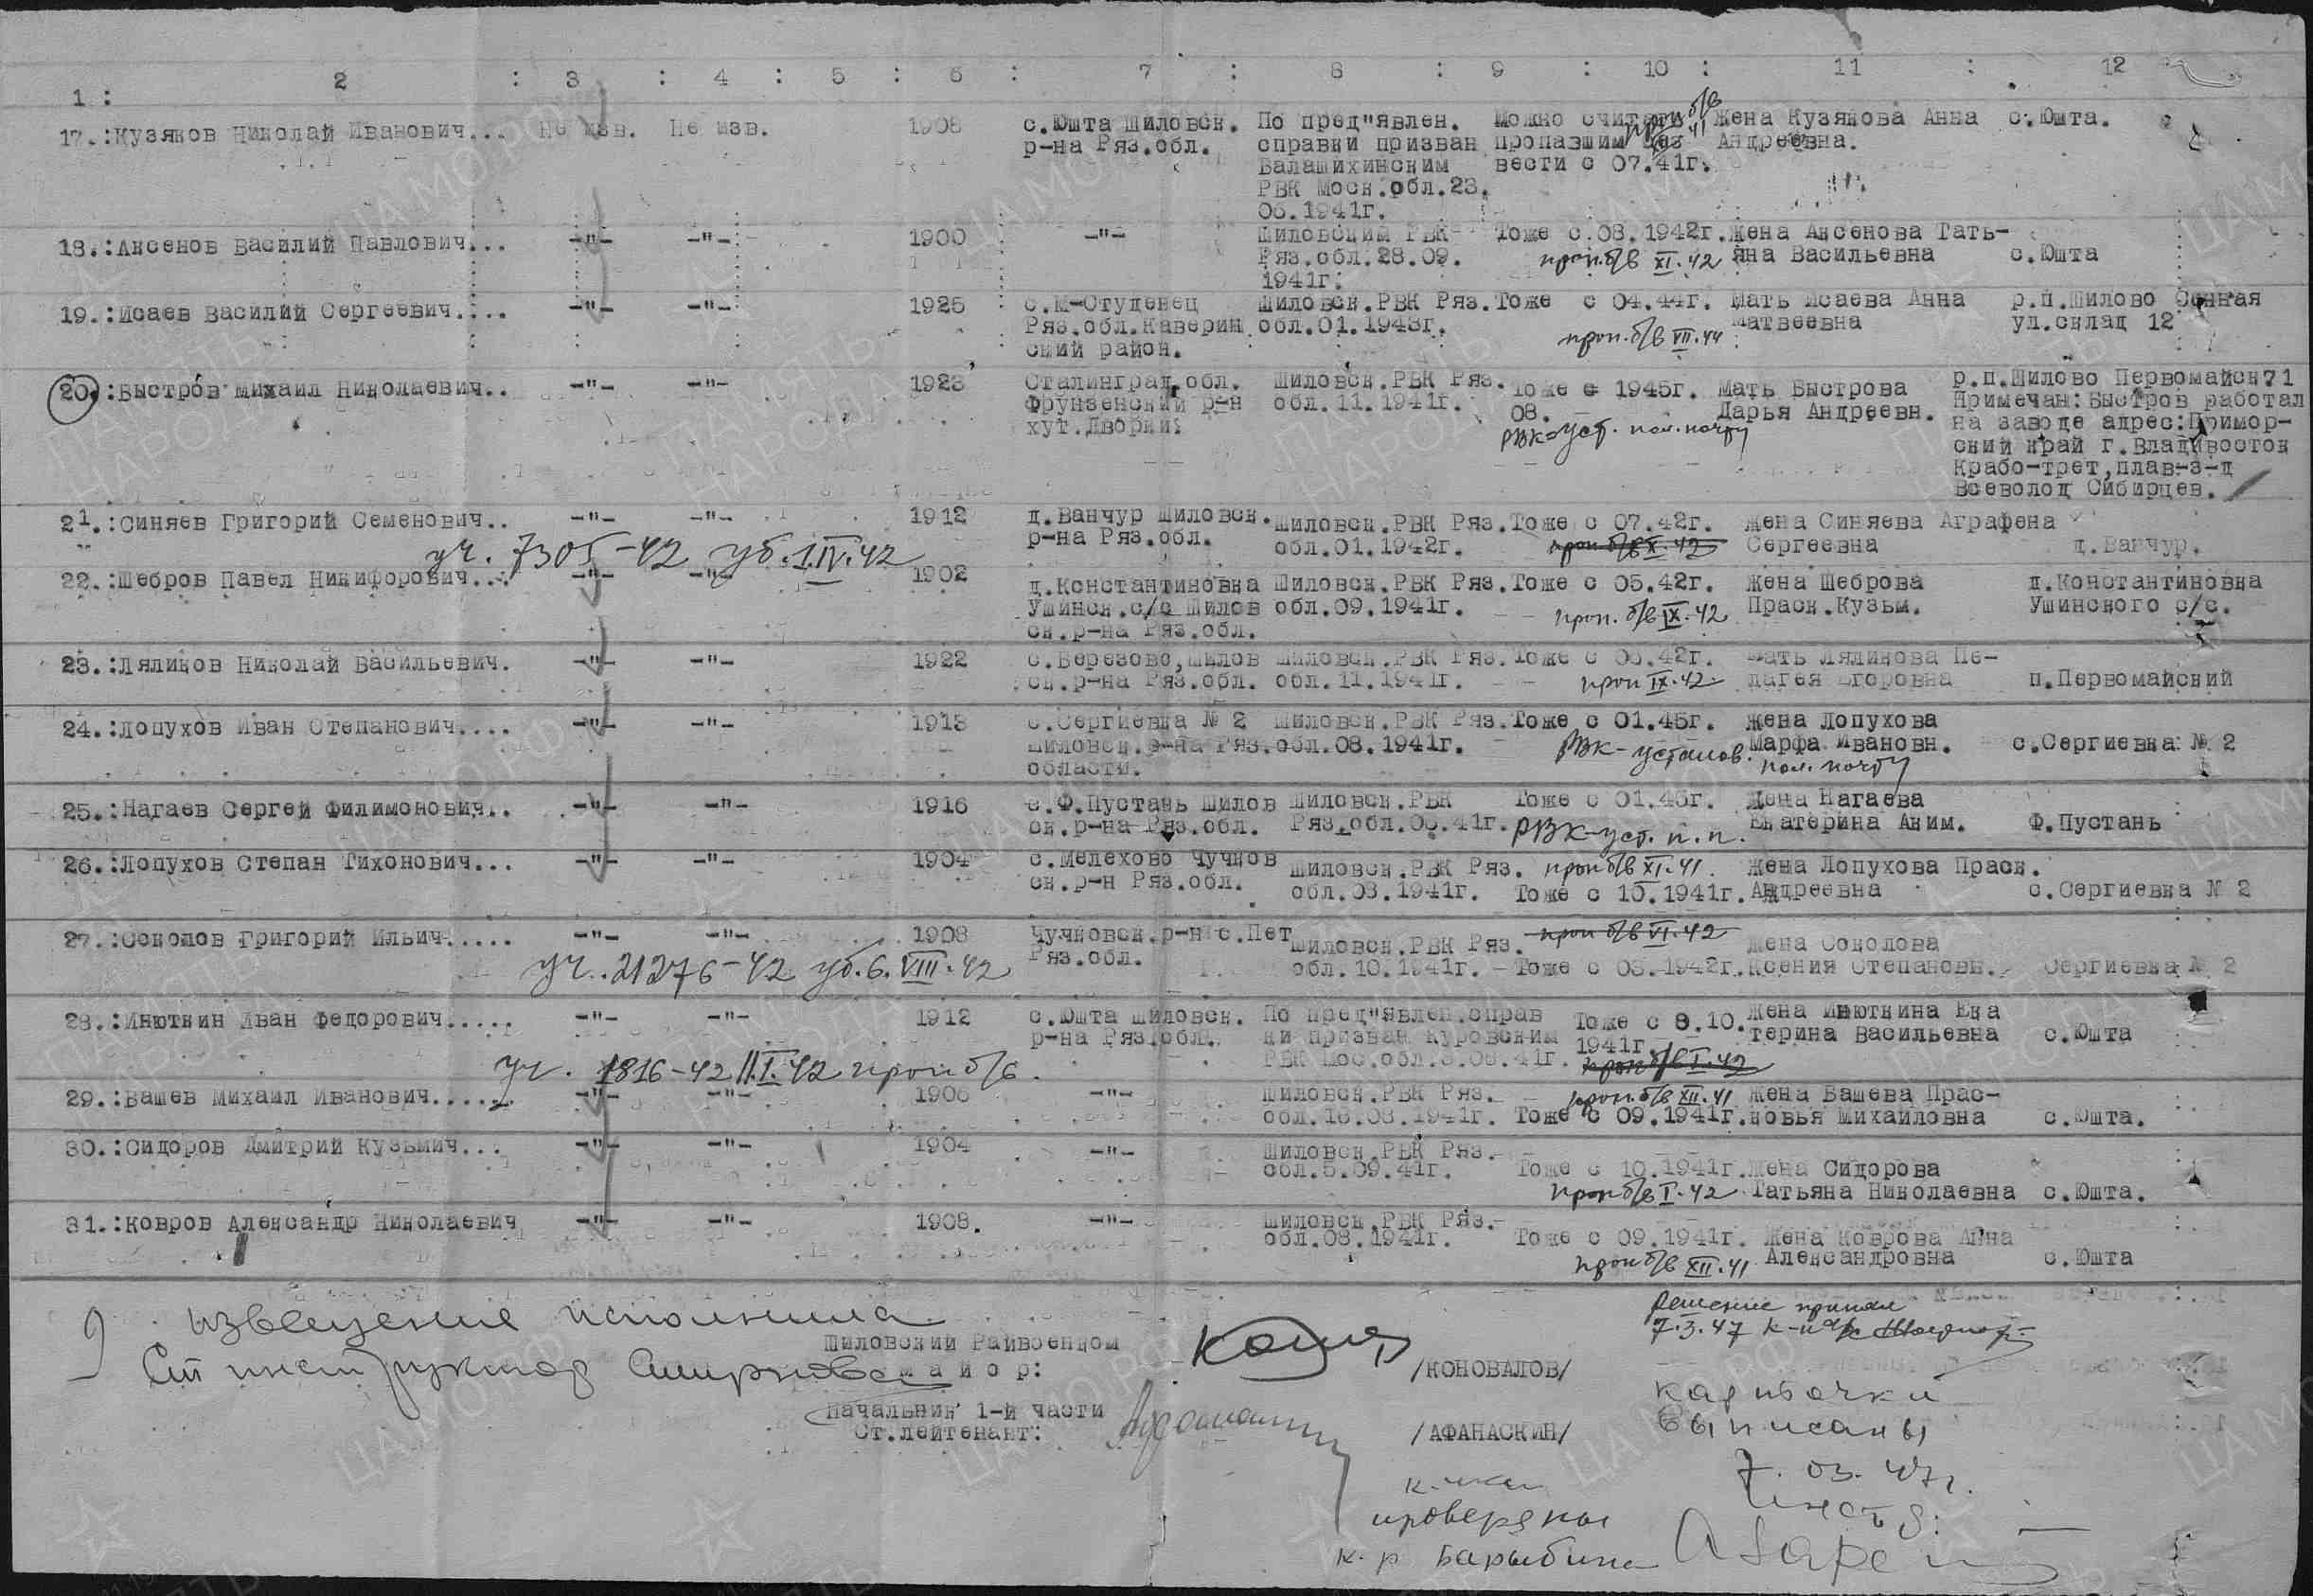 1 : 2 : 3 : 4 : 5 : 6 : 7 : 8 : 9 : 10 : 11 : 12
17.:Кузяков Николай Иванович... Не изв. Не изв. 1908 с.Юшта Шиловск. По пред"явлен. Можно считать Жена Кузякова Анна с.Юшта.
р-на Ряз.обл. справки призван пропавшим без Андреевна.
Балашихинским вести с 07.41г.
РВК Моск.обл.23.
06.1941г.
18.:Аксенов Василий Павлович... -"- -"- 1900 -"- Шиловским РВК Тоже с.08.1942г. Жена Аксенова Тать-
Ряз.обл.28.09. проп.б/в XI.42 яна Васильевна с.Юшта
1941г.
19.:Исаев Василий Сергеевич.... -"- -"- 1925 с.М-Студенец Шиловск.РВК Ряз. Тоже с 04.44г. Мать Исаева Анна р.п.Шилово Сенная
Ряз.обл.Каверин обл.01.1943г. Матвеевна ул.склад 12
ский район. проп.б/в VII.44
20.:Быстров Михаил Николаевич.. -"- -"- 1923 Сталинград.обл. Шиловск.РВК Ряз. Тоже с 1945г. Мать Быстрова р.п.Шилово Первомайск71
Фрунзенский р-н обл.11.1941г. 08. Дарья Андреевн. Примечан:Быстров работал
хут.Дворки. РВК-уст. пол.почту на заводе адрес:Примор-
ский край г.Владивосток
Крабо-трет,плав-з-д
Всеволод Сибирцев.
21.:Синяев Григорий Семенович.. -"- -"- 1912 д.Ванчур Шиловск. Шиловск.РВК Ряз. Тоже с 07.42г. Жена Синяева Аграфена
р-на Ряз.обл. обл.01.1942г. проп б/в X.42 Сергеевна д.Ванчур.
уч. 7305-42 уб.1.IV.42
22.:Шебров Павел Никифорович... -"- -"- 1902 д.Константиновка Шиловск.РВК Ряз. Тоже с 05.42г. Жена Шеброва д.Константиновка
Ушинск.с/с Шилов обл.09.1941г. проп. б/в IX.42 Праск.Кузьм. Ушинского с/с.
ск.р-на Ряз.обл.
23.:Ляликов Николай Васильевич. -"- -"- 1922 с.Березово,Шилов Шиловск.РВК Ряз. Тоже с 06.42г. Мать Ляликова Пе-
ск.р-на Ряз.обл. обл.11.1941г. проп IX.42. лагея Егоровна п.Первомайский
24.:Лопухов Иван Степанович.... -"- -"- 1918 с.Сергиевка № 2 Шиловск.РВК Ряз. Тоже с 01.45г. Жена Лопухова
Шиловск.р-на Ряз. обл.08.1941г. РВК-установ. Марфа Ивановн. с.Сергиевка № 2
области. пол. почту
25.:Нагаев Сергей Филимонович.. -"- -"- 1916 с.Ф.Пустань Шилов Шиловск.РВК Тоже с 01.45г. Жена Нагаева
ск.р-на Ряз.обл. Ряз.обл.06.41г. РВК-уст. п.п. Екатерина Аким. Ф.Пустань
26.:Лопухов Степан Тихонович... -"- -"- 1904 с.Мелехово Чучков Шиловск.РВК Ряз. проп б/в XI.41. Жена Лопухова Праск.
ск.р-н Ряз.обл. обл.08.1941г. Тоже с 10.1941г. Андреевна с.Сергиевка № 2
27.:Соколов Григорий Ильич..... -"- -"- 1908 Чучковск.р-н с.Пет Шиловск.РВК Ряз. проп б/в VI.42 Жена Соколова
Ряз.обл. обл.10.1941г. Тоже с 03.1942г. Ксения Степановн. Сергиевка № 2
уч..21276-42 уб.6.VIII.42
28.:Инюткин Иван Федорович..... -"- -"- 1912 с.Юшта Шиловск. По пред"явлен.справ Тоже с 8.10. Жена Инюткина Ека
р-на Ряз.обл. ки призван Куровским 1941г. терина Васильевна с.Юшта
РВК Мос.обл.3.08.41г. проп б/в I.42
уч. 1816-42 11.I.42 проп б/в.
29.:Вашев Михаил Иванович...... -"- -"- 1906 -"- Шиловск.РВК Ряз. проп.б/в XII.41 Жена Вашева Прас-
обл.16.08.1941г. Тоже с 09.1941г. ковья Михайловна с.Юшта.
30.:Сидоров Дмитрий Кузьмич... -"- -"- 1904 -"- Шиловск.РВК Ряз.
обл.5.09.41г. Тоже с 10.1941г. Жена Сидорова
проп б/в I.42 Татьяна Николаевна с.Юшта.
31.:Ковров Александр Николаевич -"- -"- 1908. -"- Шиловск.РВК Ряз.
обл.08.1941г. Тоже с 09.1941г. Жена Коврова Анна
проп б/в XII.41 Александровна с.Юшта
9 извещение исполнила
Ст инструктор Смирнова
Шиловский Райвоенком
майор: /КОНОВАЛОВ/
Начальник 1-й части
Ст.лейтенант: /АФАНАСКИН/
Решение принял
7.3.47 к-н
карточки
выписаны
7. 03. 47г.
проверены
к-р Барыбина